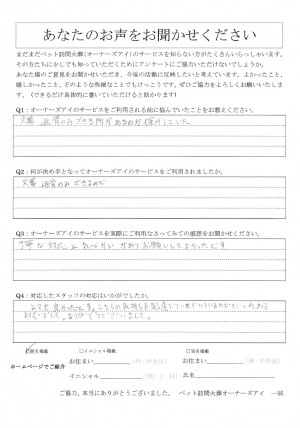 あなたのお声をお聞かせください
まだまだペット訪問火葬(オーナーズアイ)のサービスを知らない方がたくさんいらっしゃいます。
その方たちに少しでも知っていただくためにアンケートにご協力いただけないでしょうか。
あなた様のご意見をお聞かせいただき、今後の活動に反映したいと考えています。よかったこと、
嬉しかったこと、どのような些細なことでもけっこうです。ぜひご協力をよろしくお願いいたしま
す。(できるだけ具体的に書いていただけると助かります)
Q1:オーナーズアイのサービスをご利用される前に悩んでいたことをお教えください。
火葬 返骨のみできる所があるのか探していた
Q2:何が決め手となってオーナーズアイのサービスをご利用されましたか。
火葬 返骨のみできるので
Q3:オーナーズアイのサービスを実際にご利用なさってみての感想をお聞かせください。
丁寧な対応と気づかいがありお願いしてよかったです
Q4:対応したスタッフの対応はいかがでしたか。
とても良かったです。こちらの気持ちを配慮して
ありがとうございました。
匿名掲載 □イニシャル掲載 □実名掲載
お住まい (例:中央区) お住まい (例:中央区)
ホームページでご紹介
イニシャル (例:J・H) 氏名
ご協力、本当にありがとうございました。 ペット訪問火葬オーナーズアイ 一同